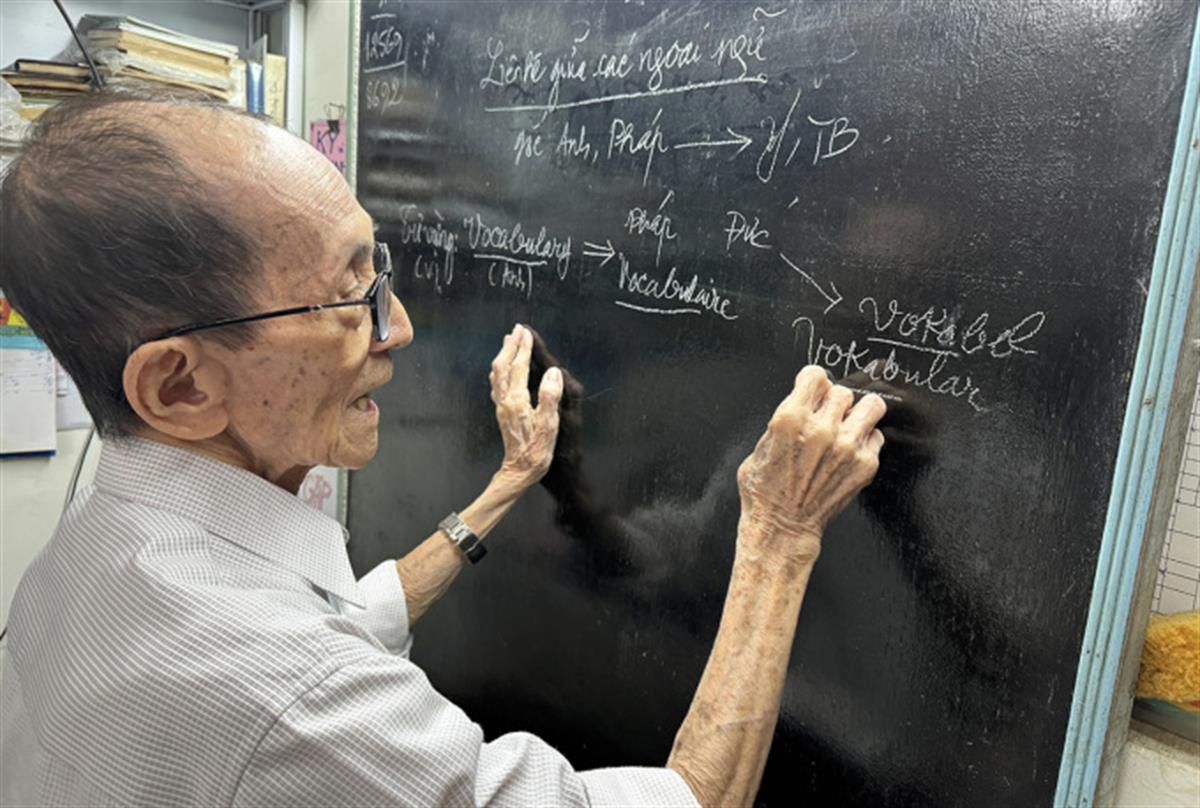 12569
8692
Liên hệ giữa các ngoại ngữ
gốc Anh, Pháp → Ý, TB
Từ vựng: Vocabulary ⇒ Pháp Đức
(VN) (Anh) Vocabulaire
Vokabel
Vokabular
KỶ